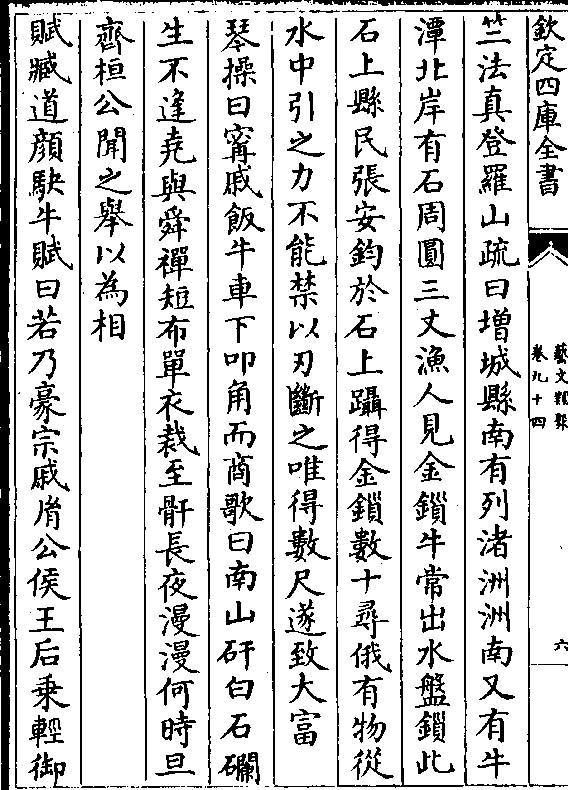 欽定四庫全書
藝文類聚
卷九十四
六
竺法真登羅山疏曰増城縣南有列渚洲洲南又有牛
潭北岸有石周圓三丈漁人見金鎖牛常出水盤鎖此
石上縣民張安鈞於石上躡得金鎖數十尋俄有物從
水中引之力不能禁以刃斷之唯得數尺遂致大富
琴操曰甯戚飯牛車下叩角而商歌曰南山矸白石礀
生不逢堯與舜禪短布單衣裁至骭長夜漫漫何時旦
齊桓公聞之舉以為相
賦臧道顔駃牛賦曰若乃豪宗戚胄公侯王后乗輕御